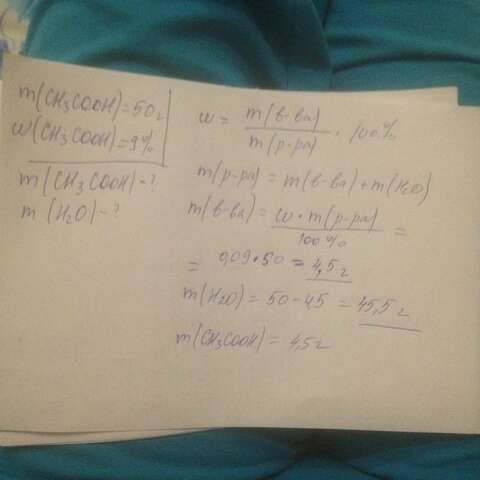 m(CH3COOH)=50г
w(CH3COOH)=9%
m(CH3COOH)-?
m(H2O)-?
w = m(в-ва) / m(р-ра) · 100%
m(р-ра) = m(в-ва)+m(H2O)
m(в-ва) = w·m(р-ра) / 100% =
= 0,09·50 = 4,5г
m(H2O) = 50-4,5 = 45,5г
m(CH3COOH) = 4,5г